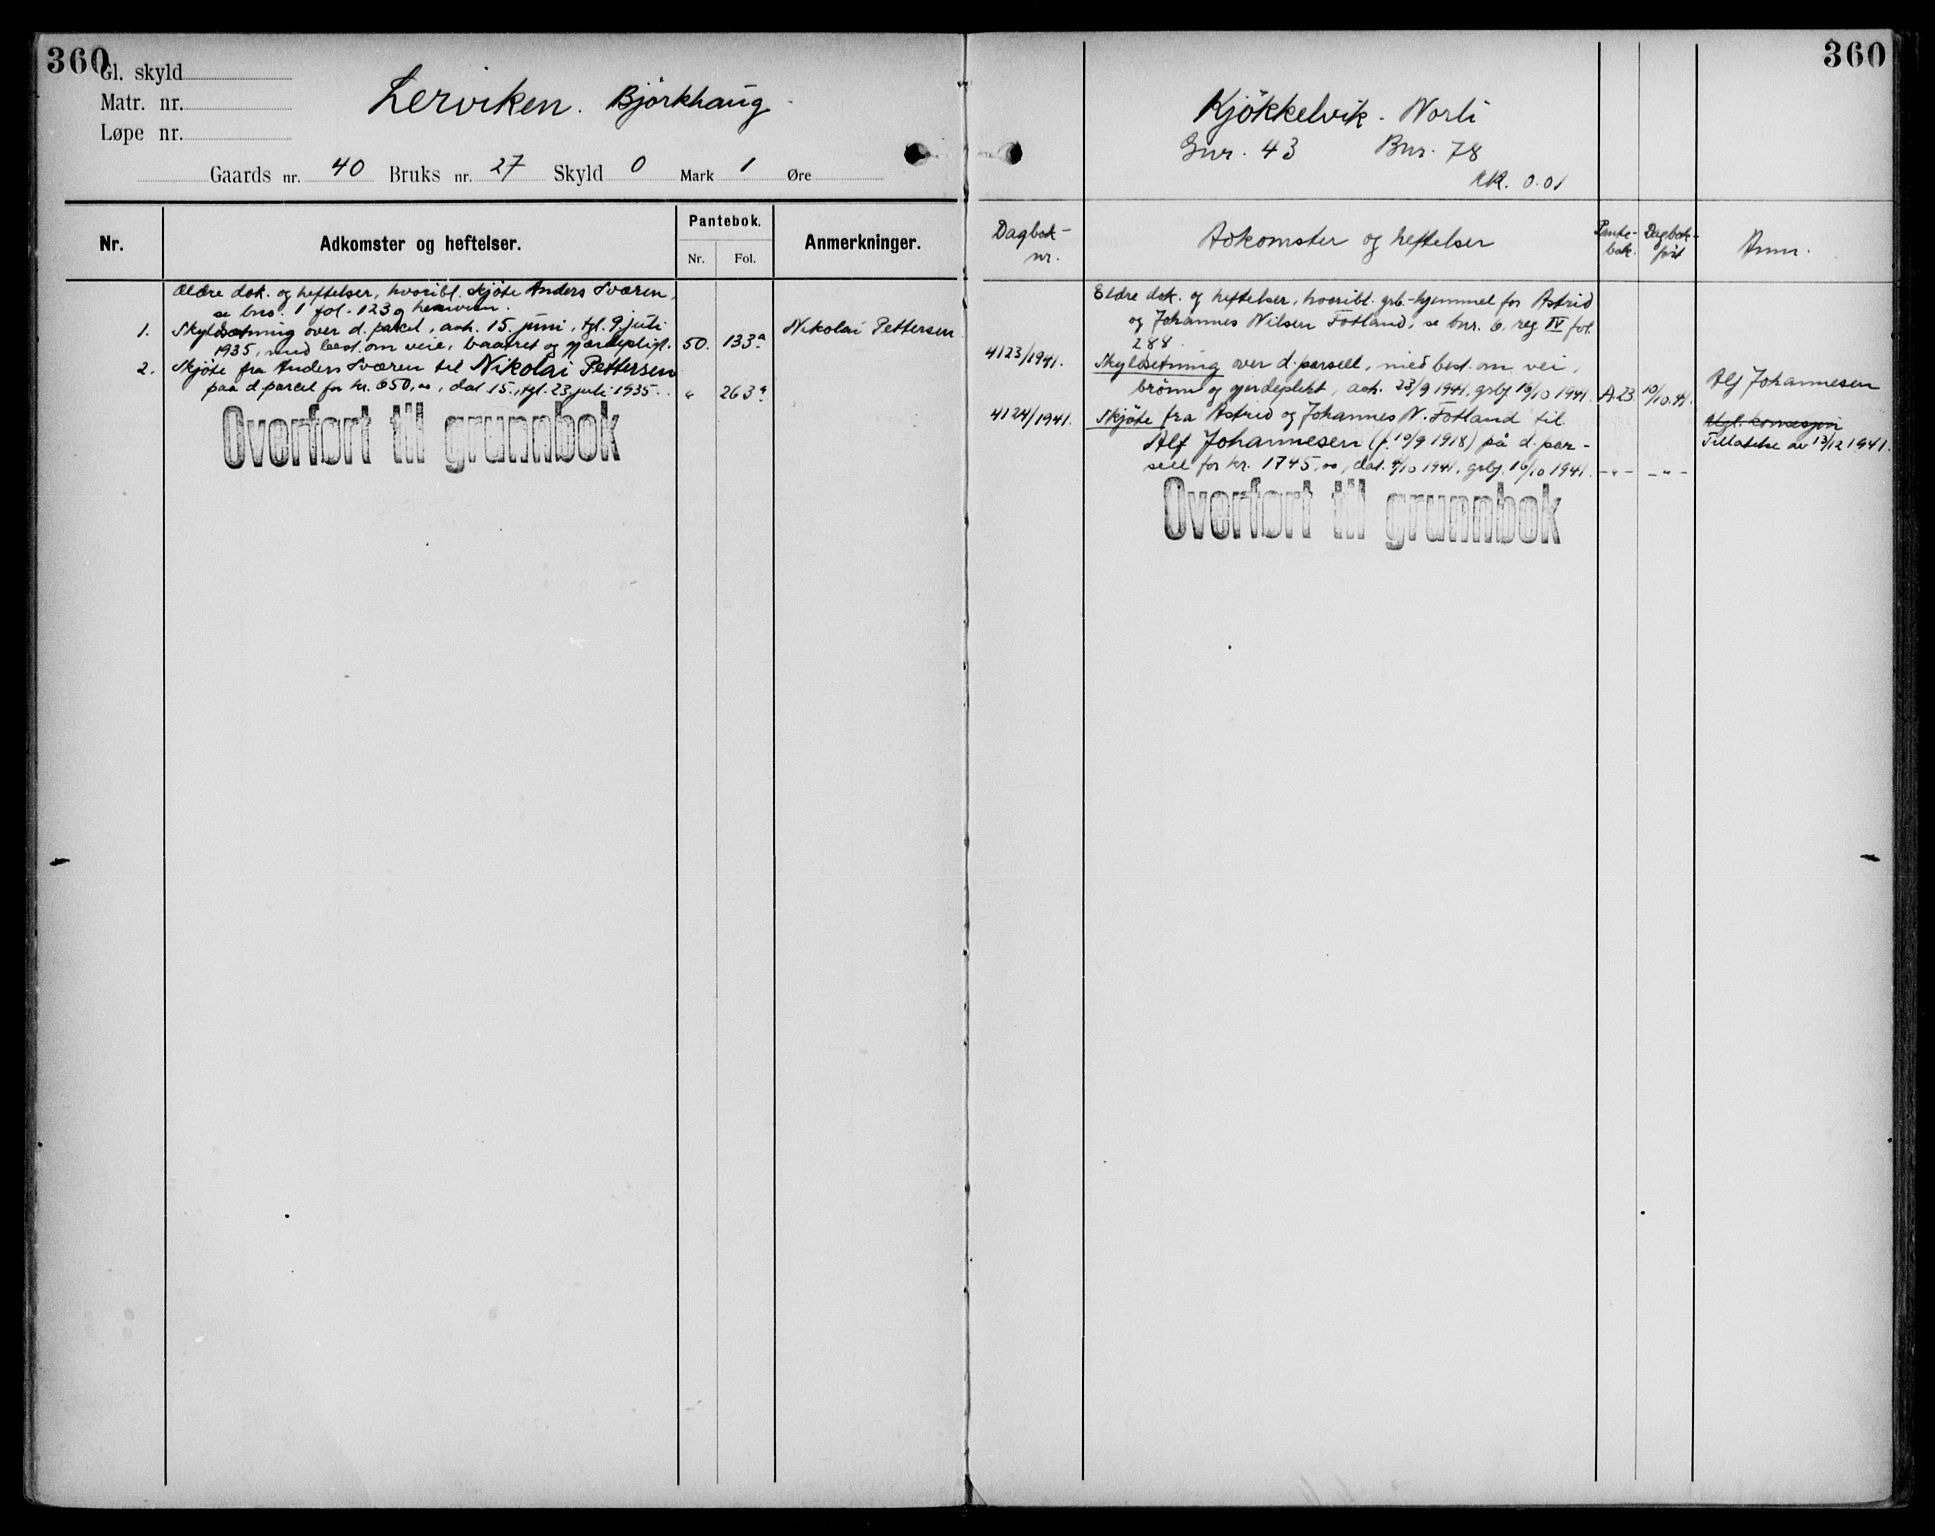 360
Gl. skyld
Matr. nr.
Løpe nr.
Lerviken. Bjørkhaug
Gaards nr. 40 Bruks nr. 27 Skyld 0 Mark 1 Øre
Nr.
Adkomster og heftelser.
Pantebok.
Nr. Fol.
Anmerkninger.
Ældre dok. og heftelser, hvoribl. skjøte Anders Sværen,
se bno. 1 fol. 123 g herverende.
1. Skyldsætning over d. parcel, avh. 15. juni, tgl. 9. juli
1935, med best. om veie, baatret og gjærdepligt. 50. 133a Nikolai Pettersen
2. Skjøte fra Anders Sværen til Nikolai Pettersen
paa d. parcel for kr. 650,00, dat. 15., tgl. 23. juli 1935. " 263a
Overført til grunnbok
360
Kjøkkelvik - Norli
Gnr. 43 Bnr. 78
Mk. 0.01
Dagbok-
nr.
Adkomster og heftelser
Pante-
bok.
Dagbok-
ført
Anm.
Eldre dok. og heftelser, hvoribl. grb.-hjemmel for Astrid
og Johannes Nilsen Fotland, se bnr. 6, reg IV fol.
288.
4123/1941. Skyldsetning over d. parsell, med best. om vei,
brønn og gjerdeplikt, avh. 23/9 1941, grbf 16/10 1941. A.23. 10/10.41. Alf Johannesen
4124/1941. Skjøte fra Astrid og Johannes N. Fotland til
Alf Johannesen (f. 10/9 1918) på d. par-
sell for kr. 1745,00, dat. 9/10 1941, grbf. 16/10 1941. -"- -"-
Utgl. konsesjon
Tillatelse av 13/12 1941.
Overført til grunnbok